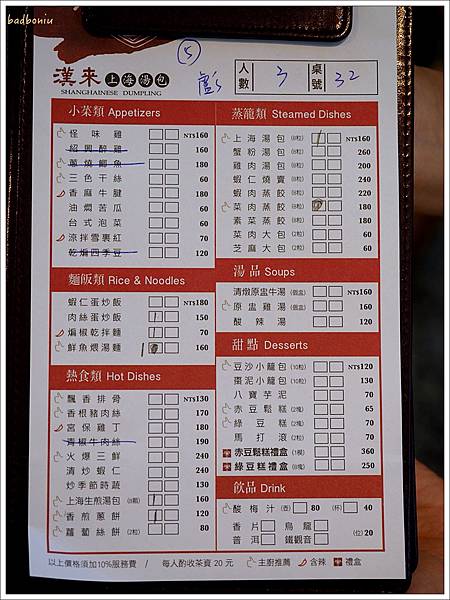 badboniu
⑤
漢來上海湯包
SHANGHAINESE DUMPLING
人數 3 桌號 32
小菜類 Appetizers
怪味雞 NT$160
紹興醉雞 160
蔥燒鯽魚 180
三色干絲 60
香麻牛腱 180
油燜苦瓜 60
台式泡菜 60
涼拌雪裏紅 70
乾煸四季豆 120
麵飯類 Rice & Noodles
蝦仁蛋炒飯 NT$180
肉絲蛋炒飯 150
煸椒乾拌麵 70
鮮魚煨湯麵 160
熱食類 Hot Dishes
飄香排骨 NT$130
香根豬肉絲 170
宮保雞丁 180
青椒牛肉絲 190
火爆三鮮 240
清炒蝦仁 240
炒季節時蔬 130
上海生煎湯包(8顆) 160
香煎蔥餅 120
蘿蔔絲餅(2粒) 80
蒸籠類 Steamed Dishes
上海湯包(8粒) NT$160
蟹粉湯包(8粒) 260
雞肉湯包(8粒) 200
蝦仁燒賣(8粒) 240
蝦肉蒸餃(8粒) 220
菜肉蒸餃(8粒) 180
素菜蒸餃(8粒) 180
菜肉大包(2粒) 60
芝麻大包(2粒) 60
湯品 Soups
清燉原盅牛湯(個盅) NT$160
原盅雞湯(個盅) 160
酸辣湯 120
甜點 Desserts
豆沙小籠包(10粒) NT$120
棗泥小籠包(10粒) 130
八寶芋泥 70
赤豆鬆糕(2塊) 65
綠豆糕(2塊) 70
馬打滾(2粒) 70
赤豆鬆糕禮盒(1模) 360
綠豆糕禮盒(8塊) 250
飲品 Drink
酸梅汁(壺) 80 (杯) 40
香片 烏龍
普洱 鐵觀音 (位)20
以上價格須加10%服務費 / 每人酌收茶資 20 元 主廚推薦 含辣 禮盒